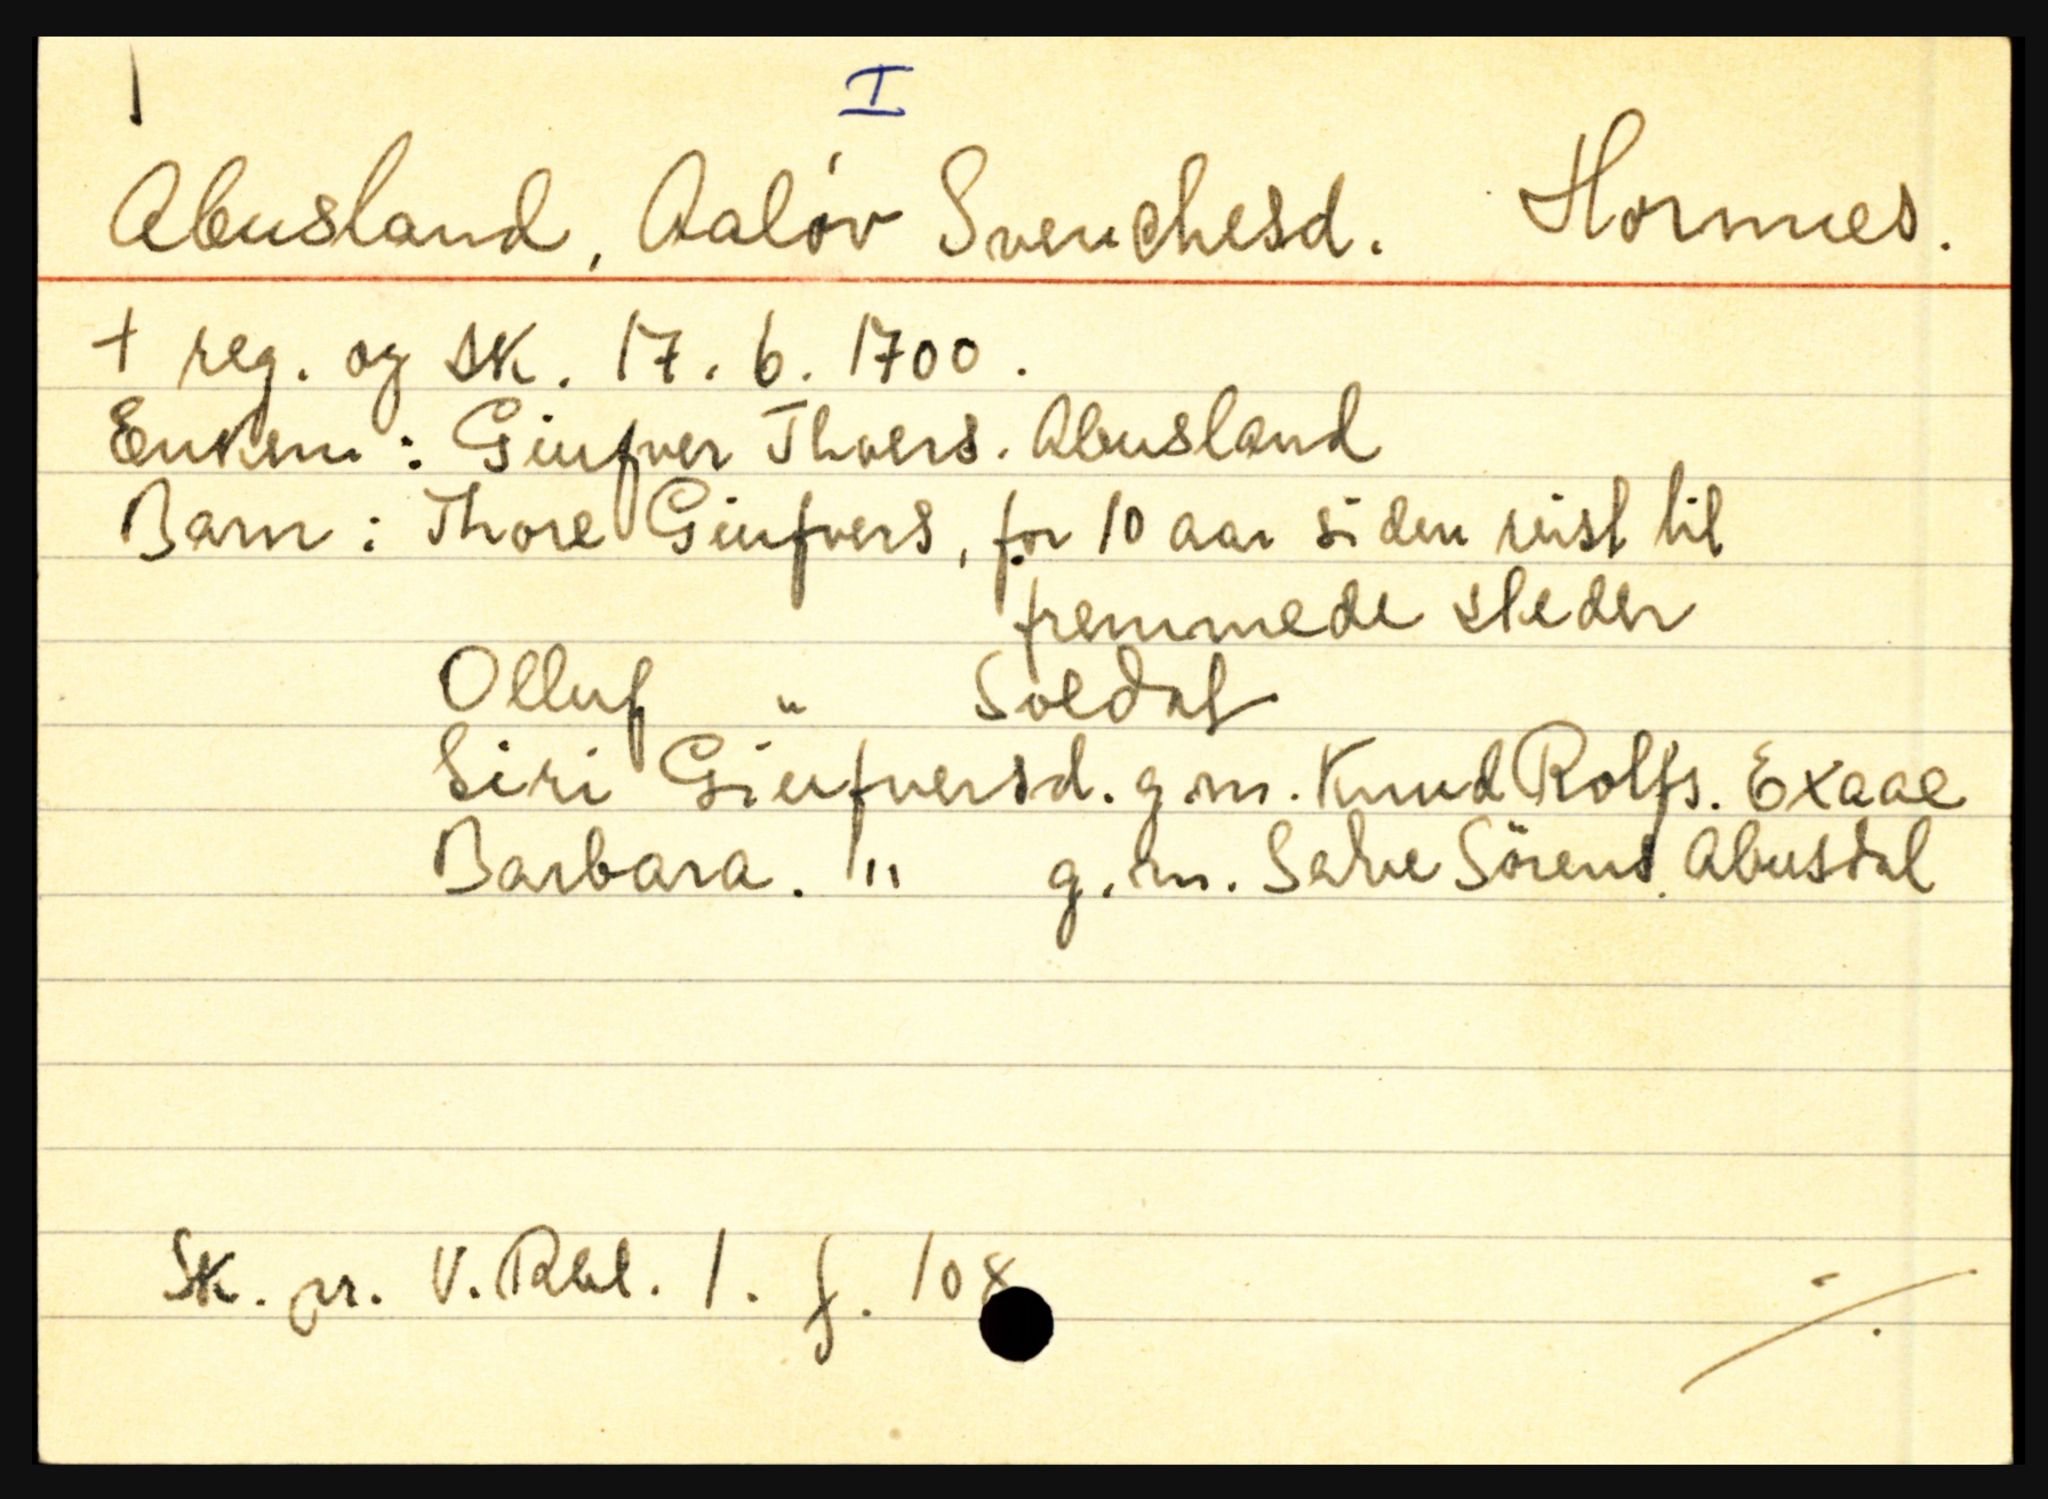 I
Abusland, Aaløv Svenchesd. Hornnes.
† reg. og sk. 17. 6. 1700.
Enkem: Giufver Thoers. Abusland
Barn: Thore Giufvers, for 10 aar siden reist til
fremmede steder
Olluf " Soldat
Siri Giufversd. g. m. Knud Rolfs. Exaae
Barbara. " g. m. Salve Sørens. Abusdal
Sk. pr. V. Rbl. 1. f. 108